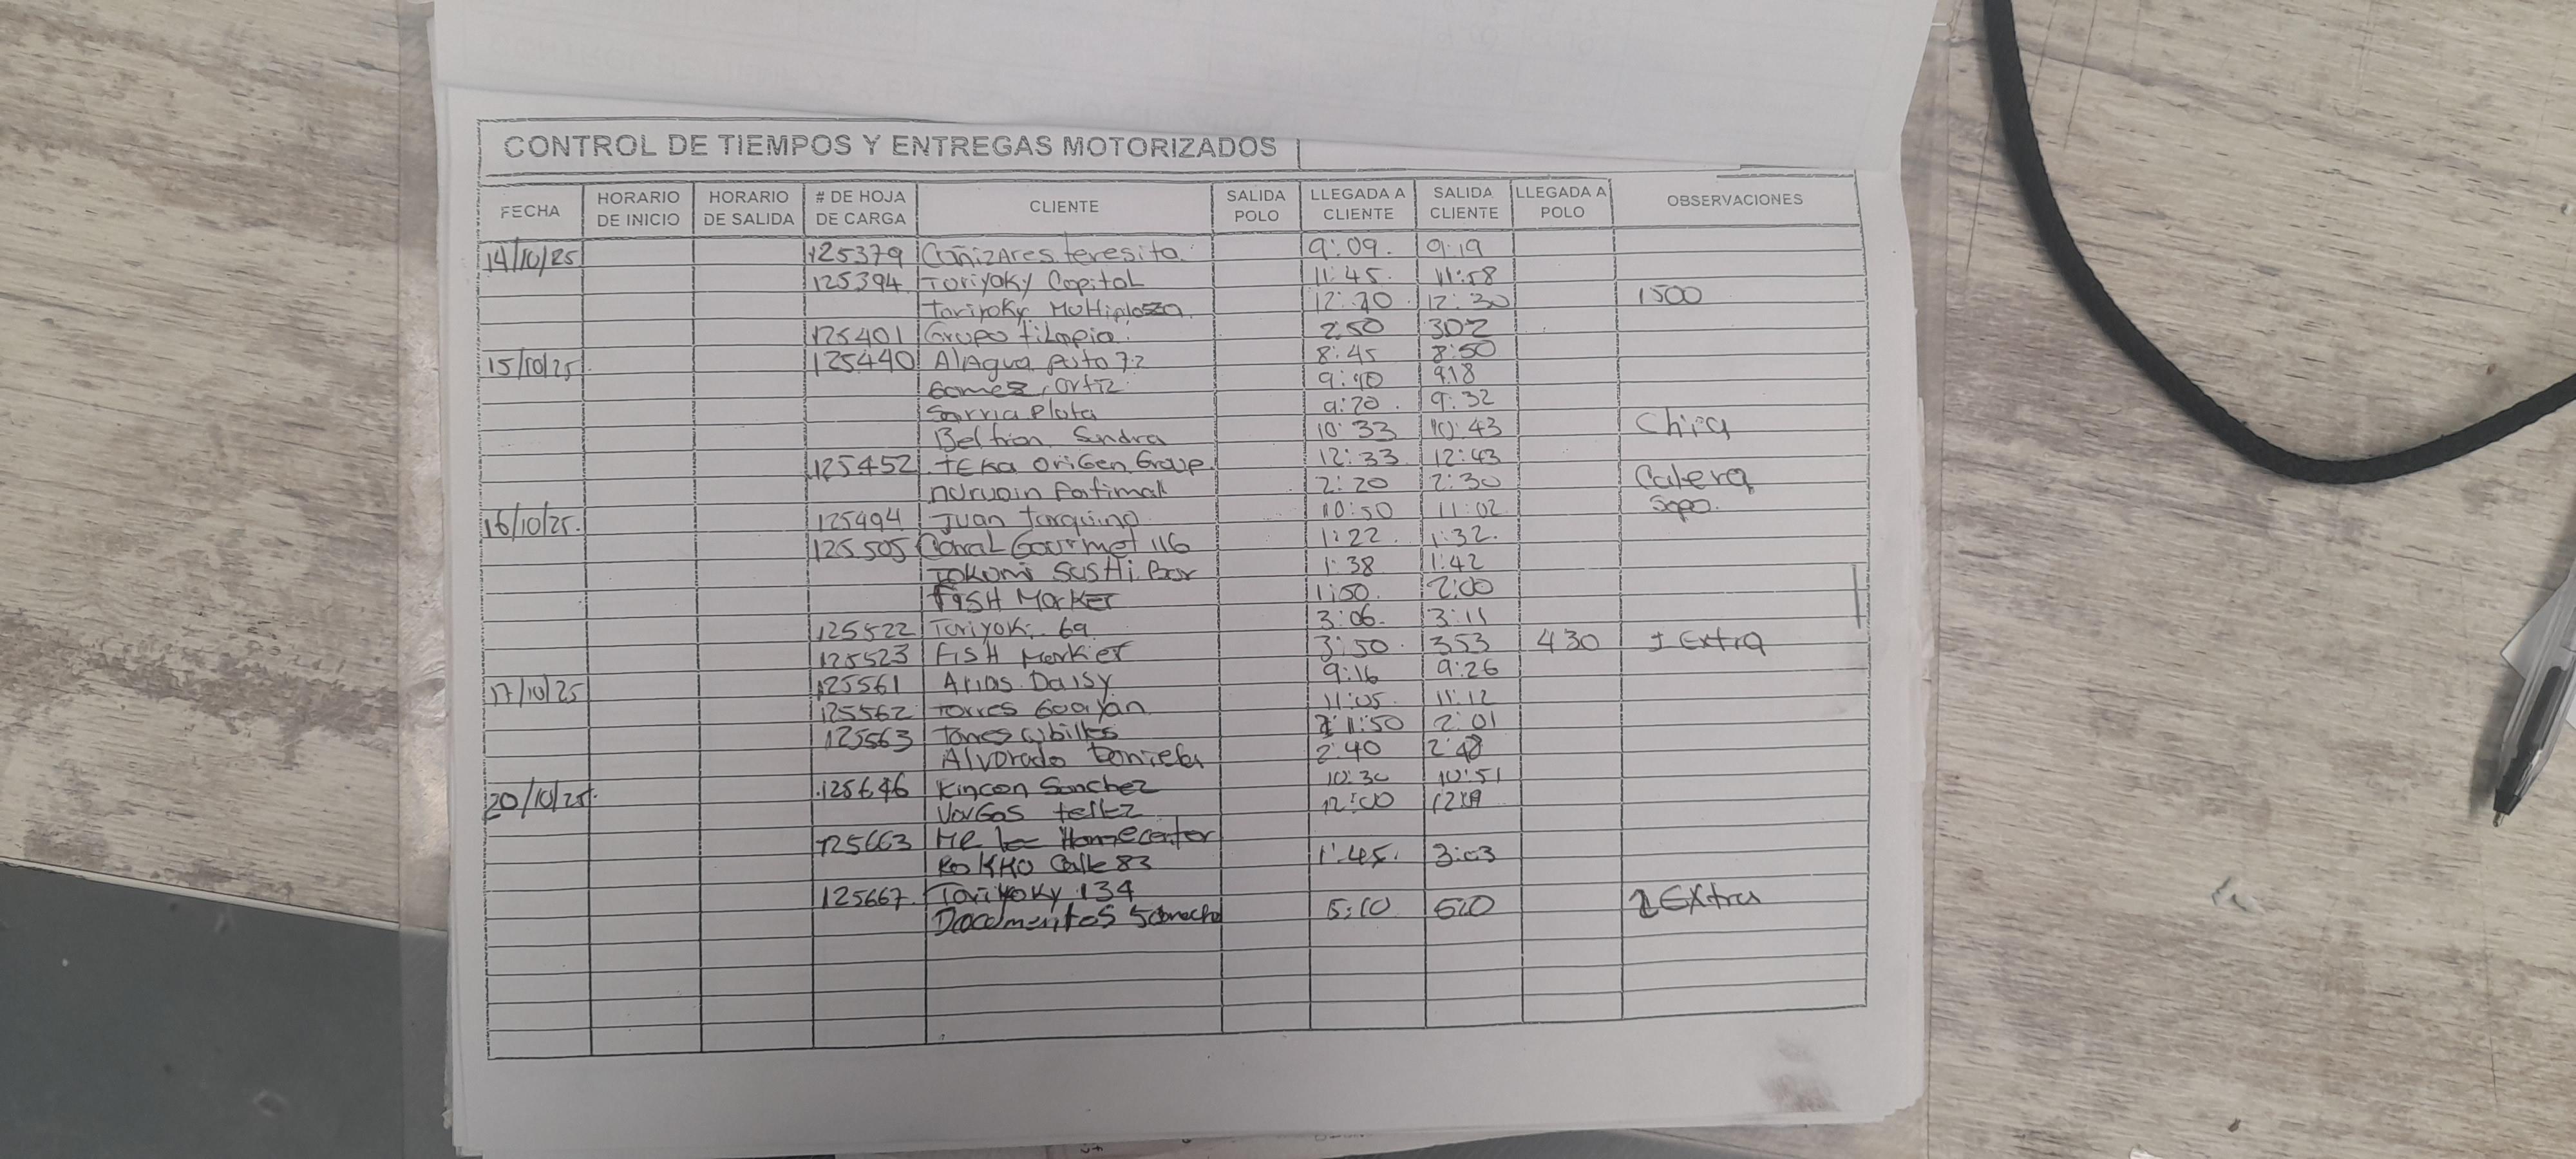 CONTROL DE TIEMPOS Y ENTREGAS MOTORIZADOS
FECHA HORARIO DE INICIO HORARIO DE SALIDA # DE HOJA DE CARGA CLIENTE SALIDA POLO LLEGADA A CLIENTE SALIDA CLIENTE LLEGADA A POLO OBSERVACIONES
14/10/25 125379 Cañizares teresita. 9:09. 9:19
125394 Toriyoky Capital 11:45. 11:58
Toriyoky Multiplaza 12:20 12:30 1500
125401 Grupo tilapia. 2:50 302
15/10/25 125440 AlAgua Auto 72 8:45 8:50
Gomez, Ortiz 9:10 918
Sarria Plata 9:20. 9:32
Beltran Sandra 10:33 10:43 Chia
125452 tEKa oriGen Group. 12:33 12:43
Fatimah 2:20 2:30 Calera
16/10/25. 125494 Juan Tarquino 10:50 11:02 Sopo.
125505 Corral Gourmet 116 1:22. 1:32.
Tokumi SUSHi Bar 1:38 1:42
FISH MarKEt 1:50. 2:00
125522 Toriyoki 69 3:06. 3:11
125523 FISH MarKEt 3:50. 353 430 1 Extra
17/10/25 125561 Arias Daisy 9:16 9:26
125562 Torres Guayan 11:05. 11:12
125563 Torres 1:50 2:01
Alvarado Daniela 2:40 2:48
20/10/25. 125646 Rincon Sanchez 10:30 10:51
VarGas tellez 12:00
125663 HR Homecenter
RoKKo Calle 83 1:45. 3:03
125667. Toriyoky 134
Documentos 5:10 520 2 Extra